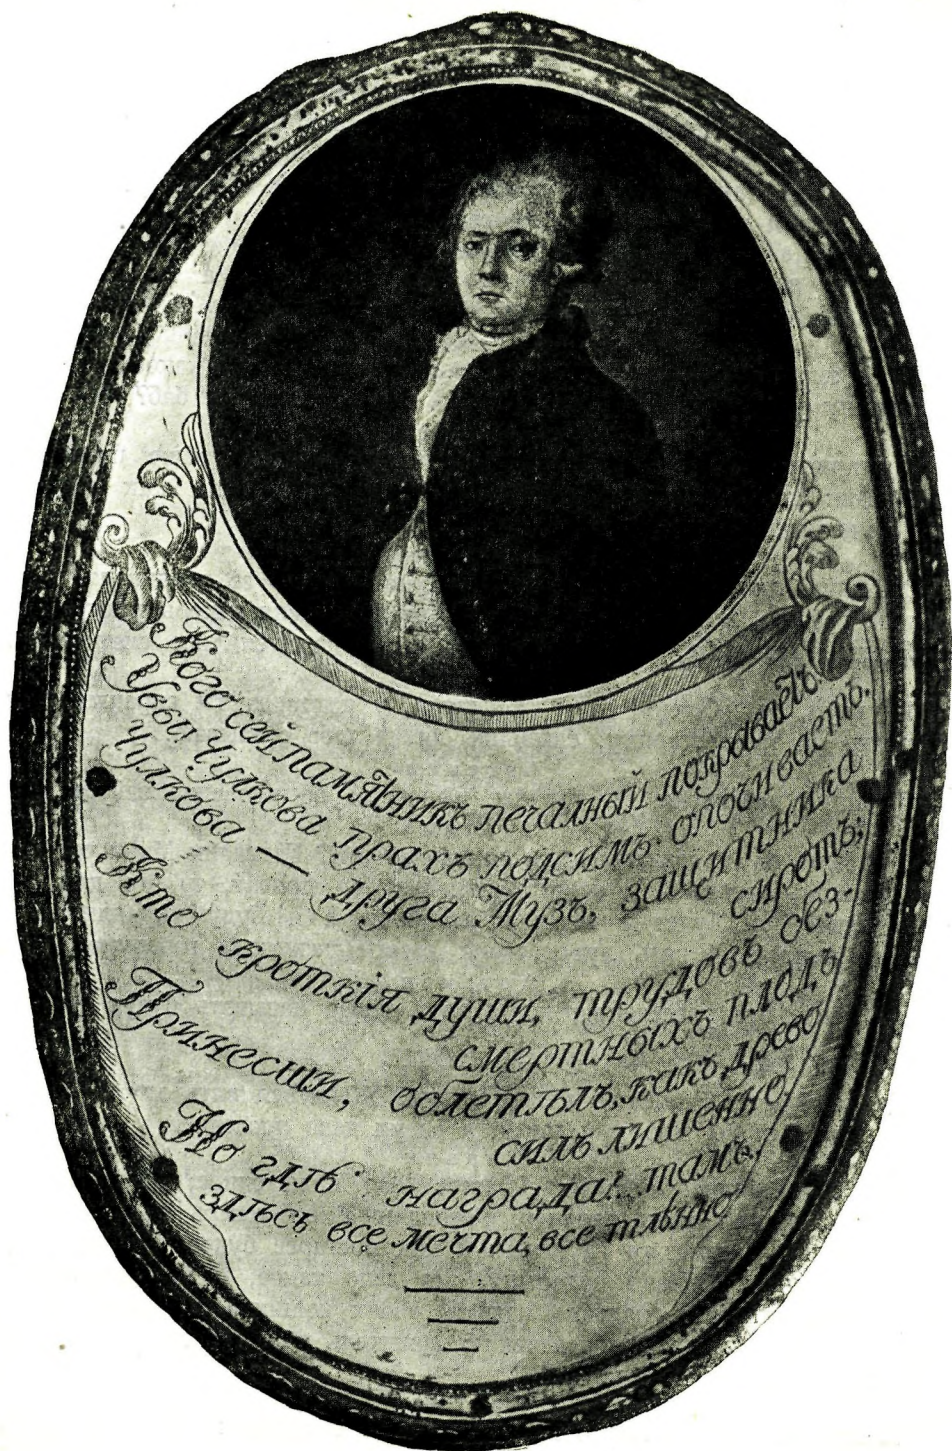 Кого сей памятникъ печалный покрываетъ
Увы! Чулкова прахъ подсимъ опочиваетъ.
Чулкова — друга Музъ, защитника
сиротъ;
Кто кроткія души, трудовъ без-
смертныхъ плодъ
Принесши, облетѣлъ, какъ древо
силъ лишенно,
Но гдѣ награда?.. тамъ,
здѣсь все мечта, все тлѣнно